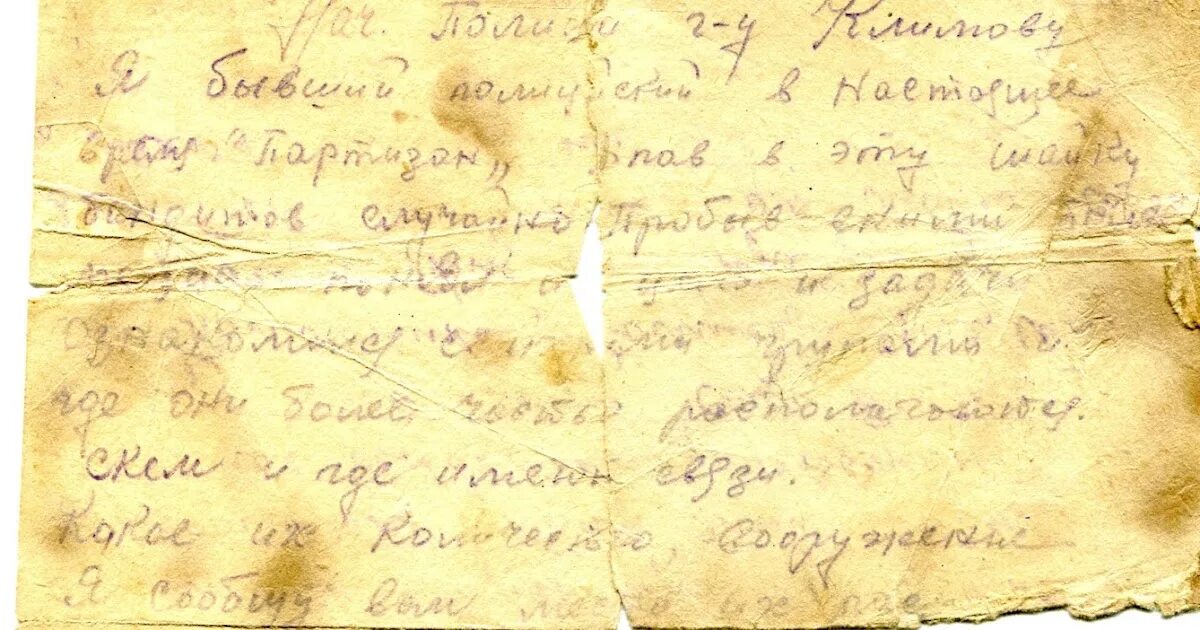 Нач. Полиции г-у Климову
Я бывший полицейский в настоящее
время "Партизан„ попав в эту шайку
бандитов случайно Пробыв сними
понял и задачи
Ознакомился группами и
где они более часто располагаются.
скем и где имено связи.
Какое их количество, вооружение
Я сообщу вам место их